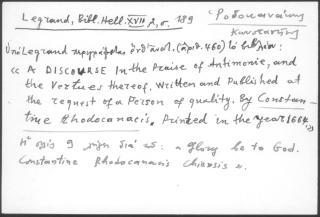 Legrand, Bibl. Hell. XVII 2, σ. 189
Ῥοδοκανάκης
Κωνσταντῖνος
Ὑπὸ Legrand περιγράφεται (ἀριθ. 460) τὸ βιβλίον:
« A DISCOURSE In the Praise of Antimonie, and
the Vertues thereof, Written and Published at
the request of a Person of quality. By Constan-
tine Rhodocanacis. Printed in the year 1664.»
a Glory be to God.
Constantine Rhodocanacis Chiensis ».